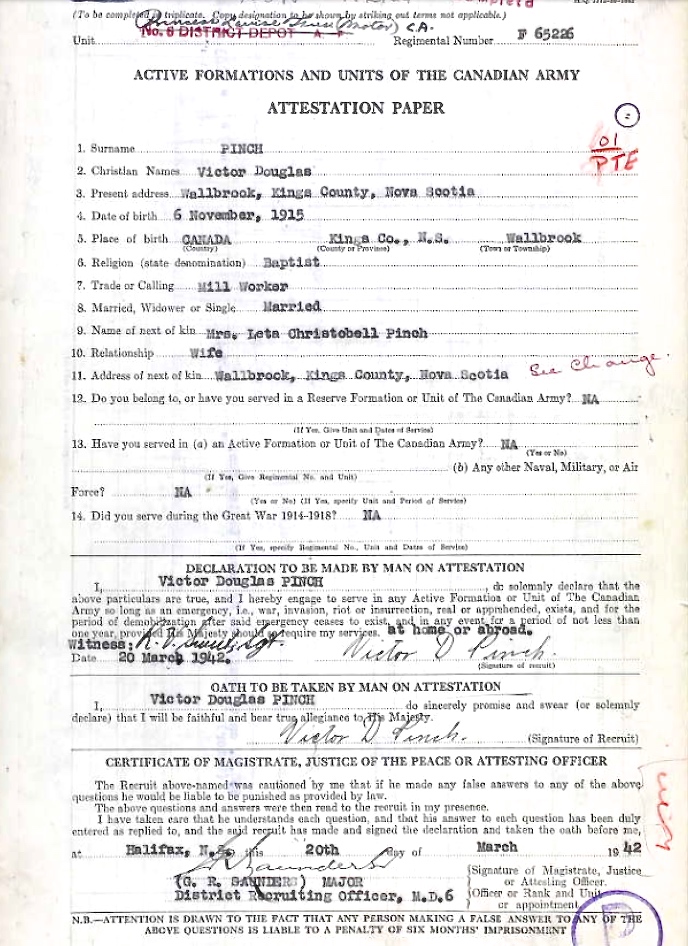 (To be completed in triplicate. Copy designation to be shown by striking out terms not applicable.)
Princess Louise (Motor) C.A.
Unit No. 6 DISTRICT DEPOT A. F. Regimental Number F 65226
ACTIVE FORMATIONS AND UNITS OF THE CANADIAN ARMY
ATTESTATION PAPER
01
PTE
1. Surname PINCH
2. Christian Names Victor Douglas
3. Present address Wallbrook, Kings County, Nova Scotia
4. Date of birth 6 November, 1915
5. Place of birth CANADA Kings Co., N.S. Wallbrook
(Country) (County or Province) (Town or Township)
6. Religion (state denomination) Baptist
7. Trade or Calling Mill Worker
8. Married, Widower or Single Married
9. Name of next of kin Mrs. Leta Christobell Pinch
10. Relationship Wife
11. Address of next of kin Wallbrook, Kings County, Nova Scotia See Change.
12. Do you belong to, or have you served in a Reserve Formation or Unit of The Canadian Army? NA
(If Yes, Give Unit and Dates of Service)
13. Have you served in (a) an Active Formation or Unit of The Canadian Army? NA
(Yes or No)
(b) Any other Naval, Military, or Air
(If Yes, Give Regimental No. and Unit)
Force? NA
(Yes or No) (If Yes, specify Unit and Period of Service)
14. Did you serve during the Great War 1914-1918? NA
(If Yes, specify Regimental No., Unit and Dates of Service)
DECLARATION TO BE MADE BY MAN ON ATTESTATION
I, Victor Douglas PINCH, do solemnly declare that the
above particulars are true, and I hereby engage to serve in any Active Formation or Unit of The Canadian
Army so long as an emergency, i.e., war, invasion, riot or insurrection, real or apprehended, exists, and for the
period of demobilization after said emergency ceases to exist, and in any event for a period of not less than
one year, provided His Majesty should so require my services. at home or abroad.
Witness: Sgt. Victor D Pinch.
Date 20 March 1942. (Signature of recruit)
OATH TO BE TAKEN BY MAN ON ATTESTATION
I, Victor Douglas PINCH do sincerely promise and swear (or solemnly
declare) that I will be faithful and bear true allegiance to His Majesty.
Victor D. Pinch. (Signature of Recruit)
CERTIFICATE OF MAGISTRATE, JUSTICE OF THE PEACE OR ATTESTING OFFICER
The Recruit above-named was cautioned by me that if he made any false answers to any of the above
questions he would be liable to be punished as provided by law.
The above questions and answers were then read to the recruit in my presence.
I have taken care that he understands each question, and that his answer to each question has been duly
entered as replied to, and the said recruit has made and signed the declaration and taken the oath before me,
at Halifax, N.S. this 20th day of March 1942
GR Saunders
(Signature of Magistrate, Justice
(G. R. SAUNDERS) MAJOR or Attesting Officer.
District Recruiting Officer, M.D.6 (Officer or Rank and Unit
or appointment.
N.B.—ATTENTION IS DRAWN TO THE FACT THAT ANY PERSON MAKING A FALSE ANSWER TO ANY OF THE
ABOVE QUESTIONS IS LIABLE TO A PENALTY OF SIX MONTHS' IMPRISONMENT